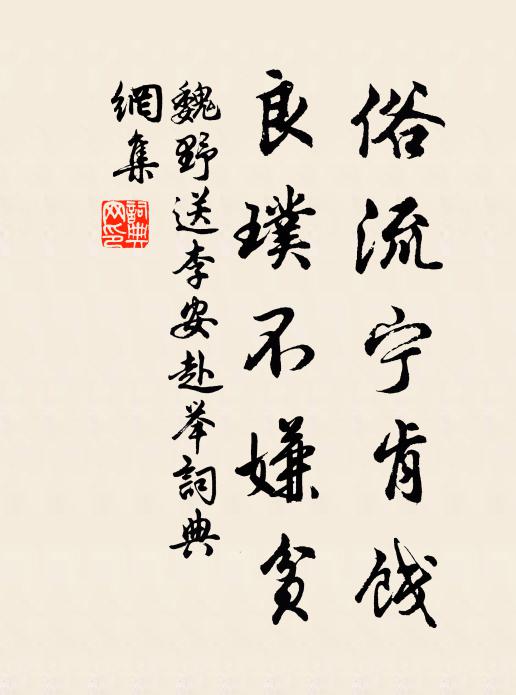 俗流宁肯饯
良璞不嫌贫
魏野送李安赴举詞典
網集
詞典网印